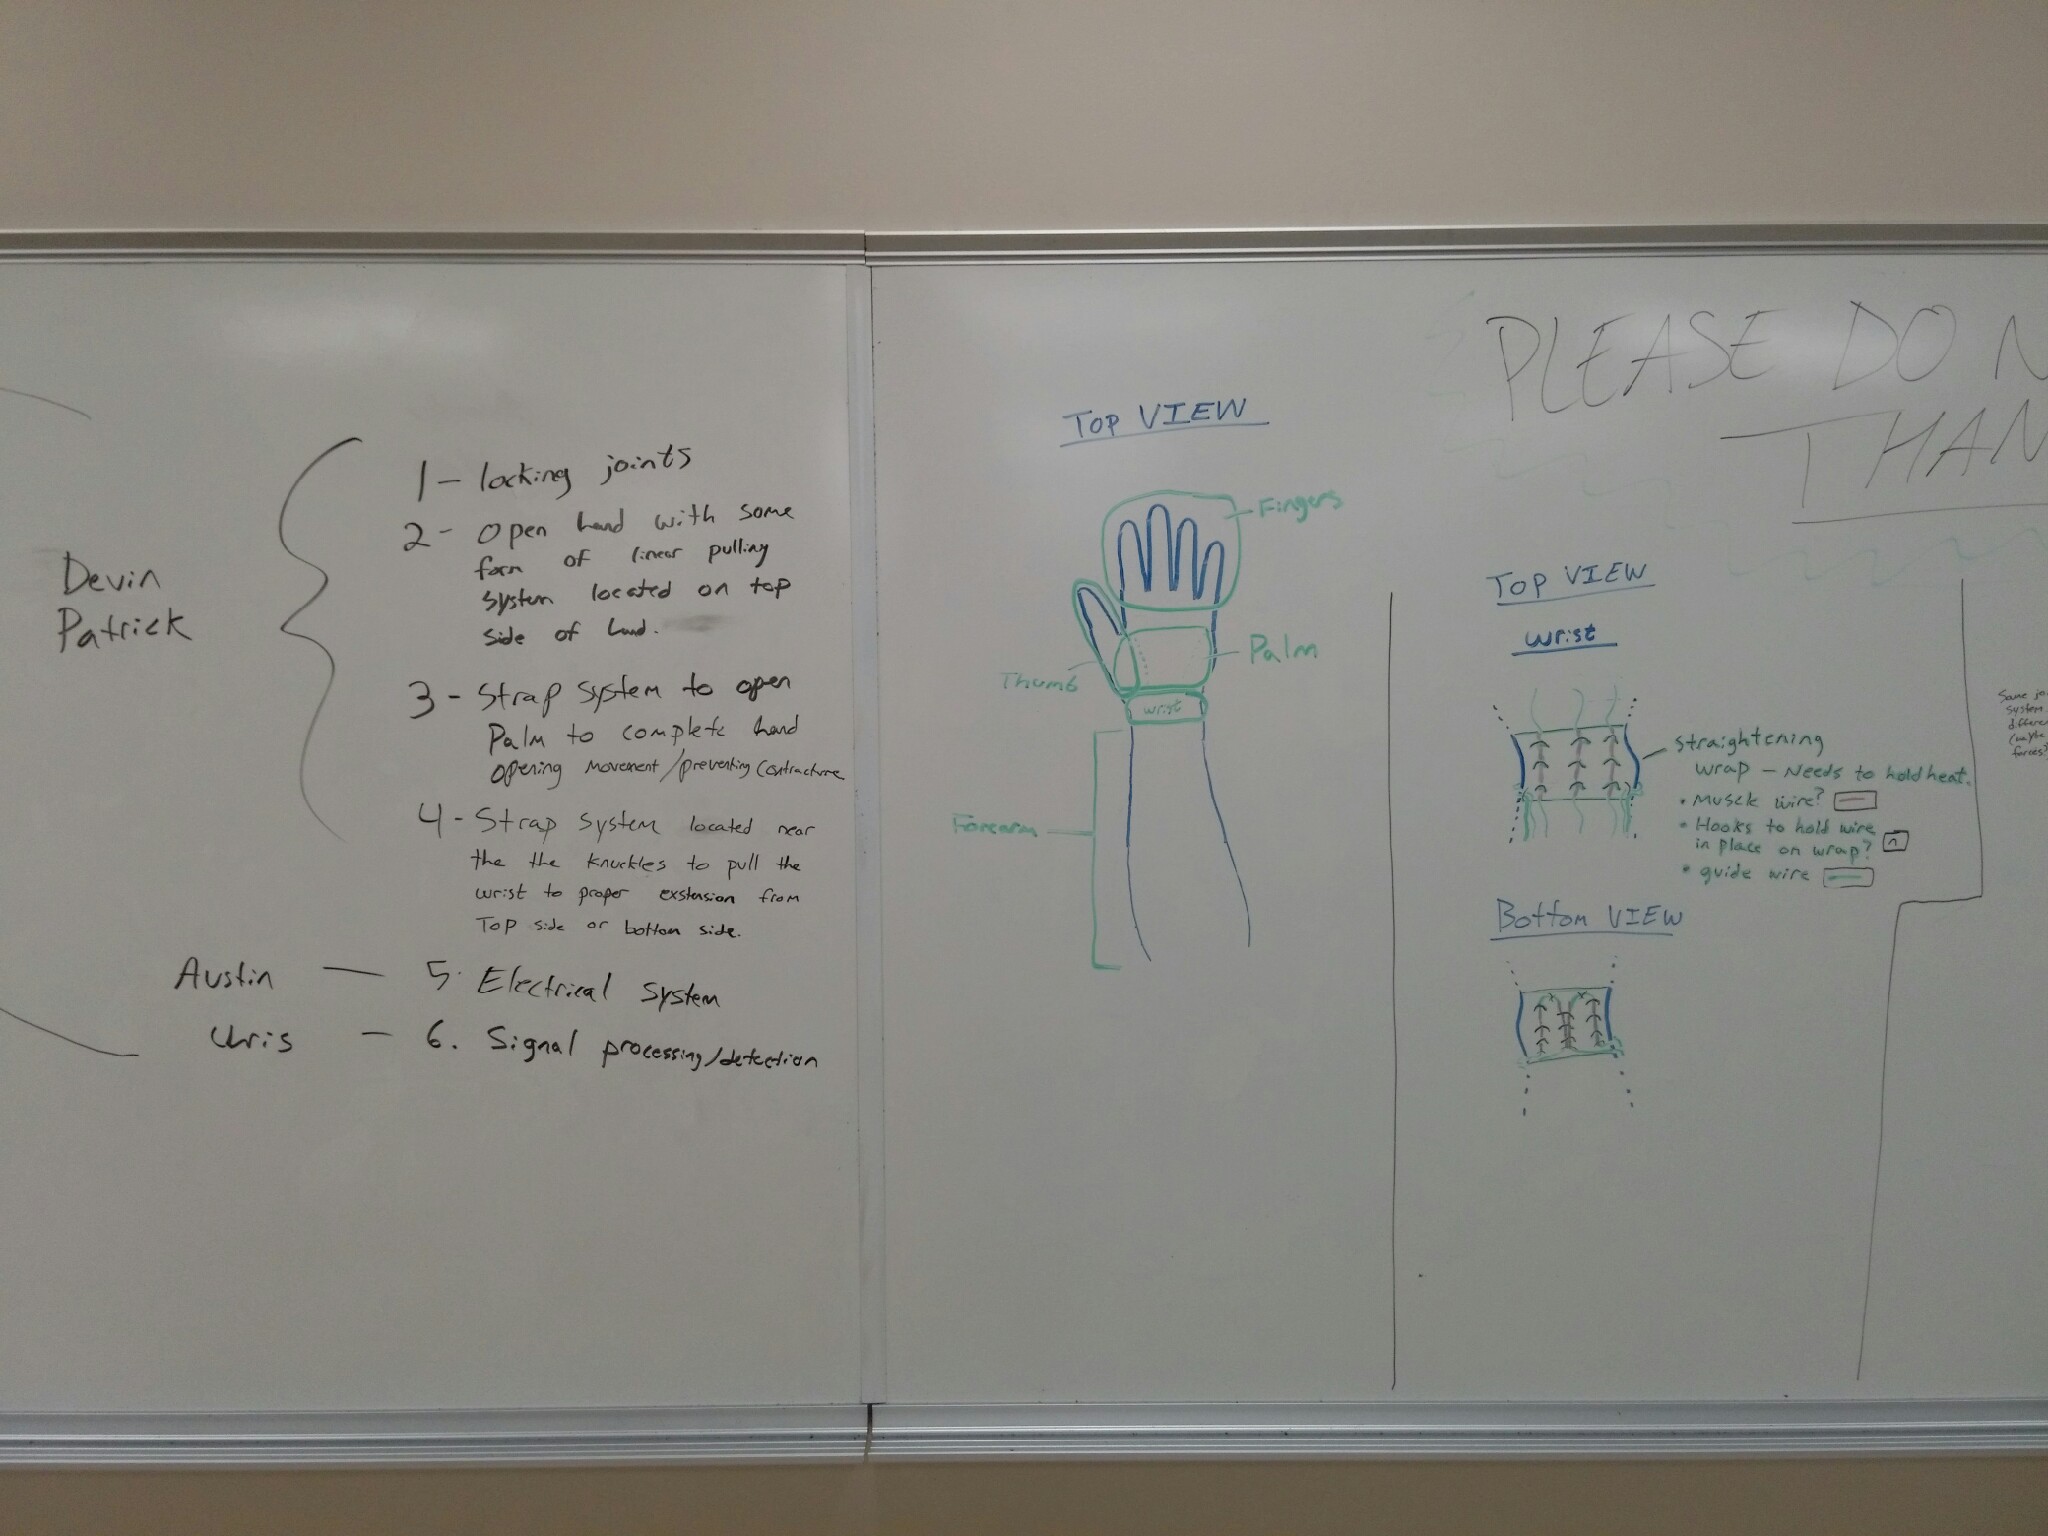 Devin
Patrick
1 - locking joints
2 - Open hand with some
form of linear pulling
system located on top
side of hand.
3 - Strap system to open
Palm to complete hand
opening movement/preventing contracture
4 - Strap system located near
the the knuckles to pull the
wrist to proper exstension from
Top side or bottom side.
Austin — 5. Electrical system
Chris — 6. Signal processing/detection
Top VIEW
Fingers
Palm
Thumb
wrist
Forearm
PLEASE DO N
THAN
Top VIEW
wrist
straightening
wrap - Needs to hold heat.
• Muscle wire?
• Hooks to hold wire
in place on wrap?
• guide wire
Bottom VIEW
Same jo
system
differe
(maybe
forces?